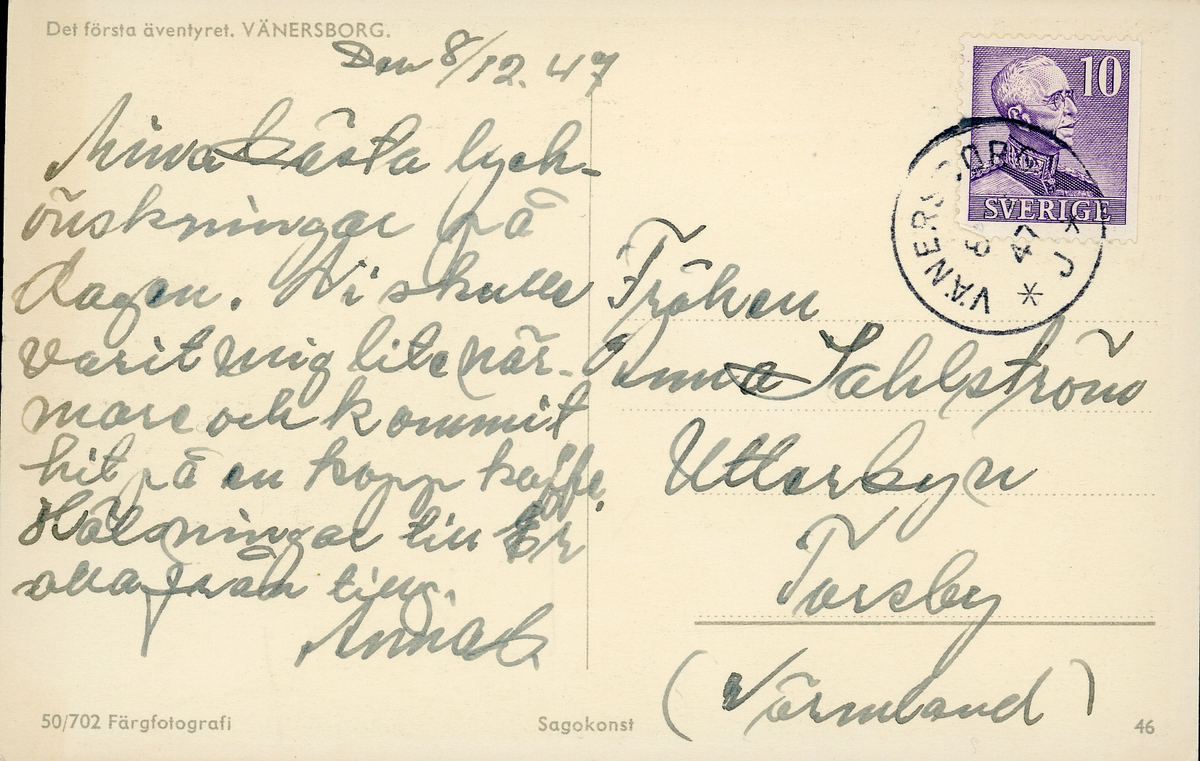 Det första äventyret. VÄNERSBORG.
Den 8/12. 47
Mina bästa lyck-
önskningar på
dagen. Ni skulle
varit mig lite när-
mare och kommit
hit på en kopp kaffe.
Hälsningar till Er
alla från
Anna
Fröken
Anna Sahlström
Utterbyn
Torsby
(Värmland)
10
SVERIGE
VÄNERSBORG
8
47
50/702 Färgfotografi
Sagokonst
46